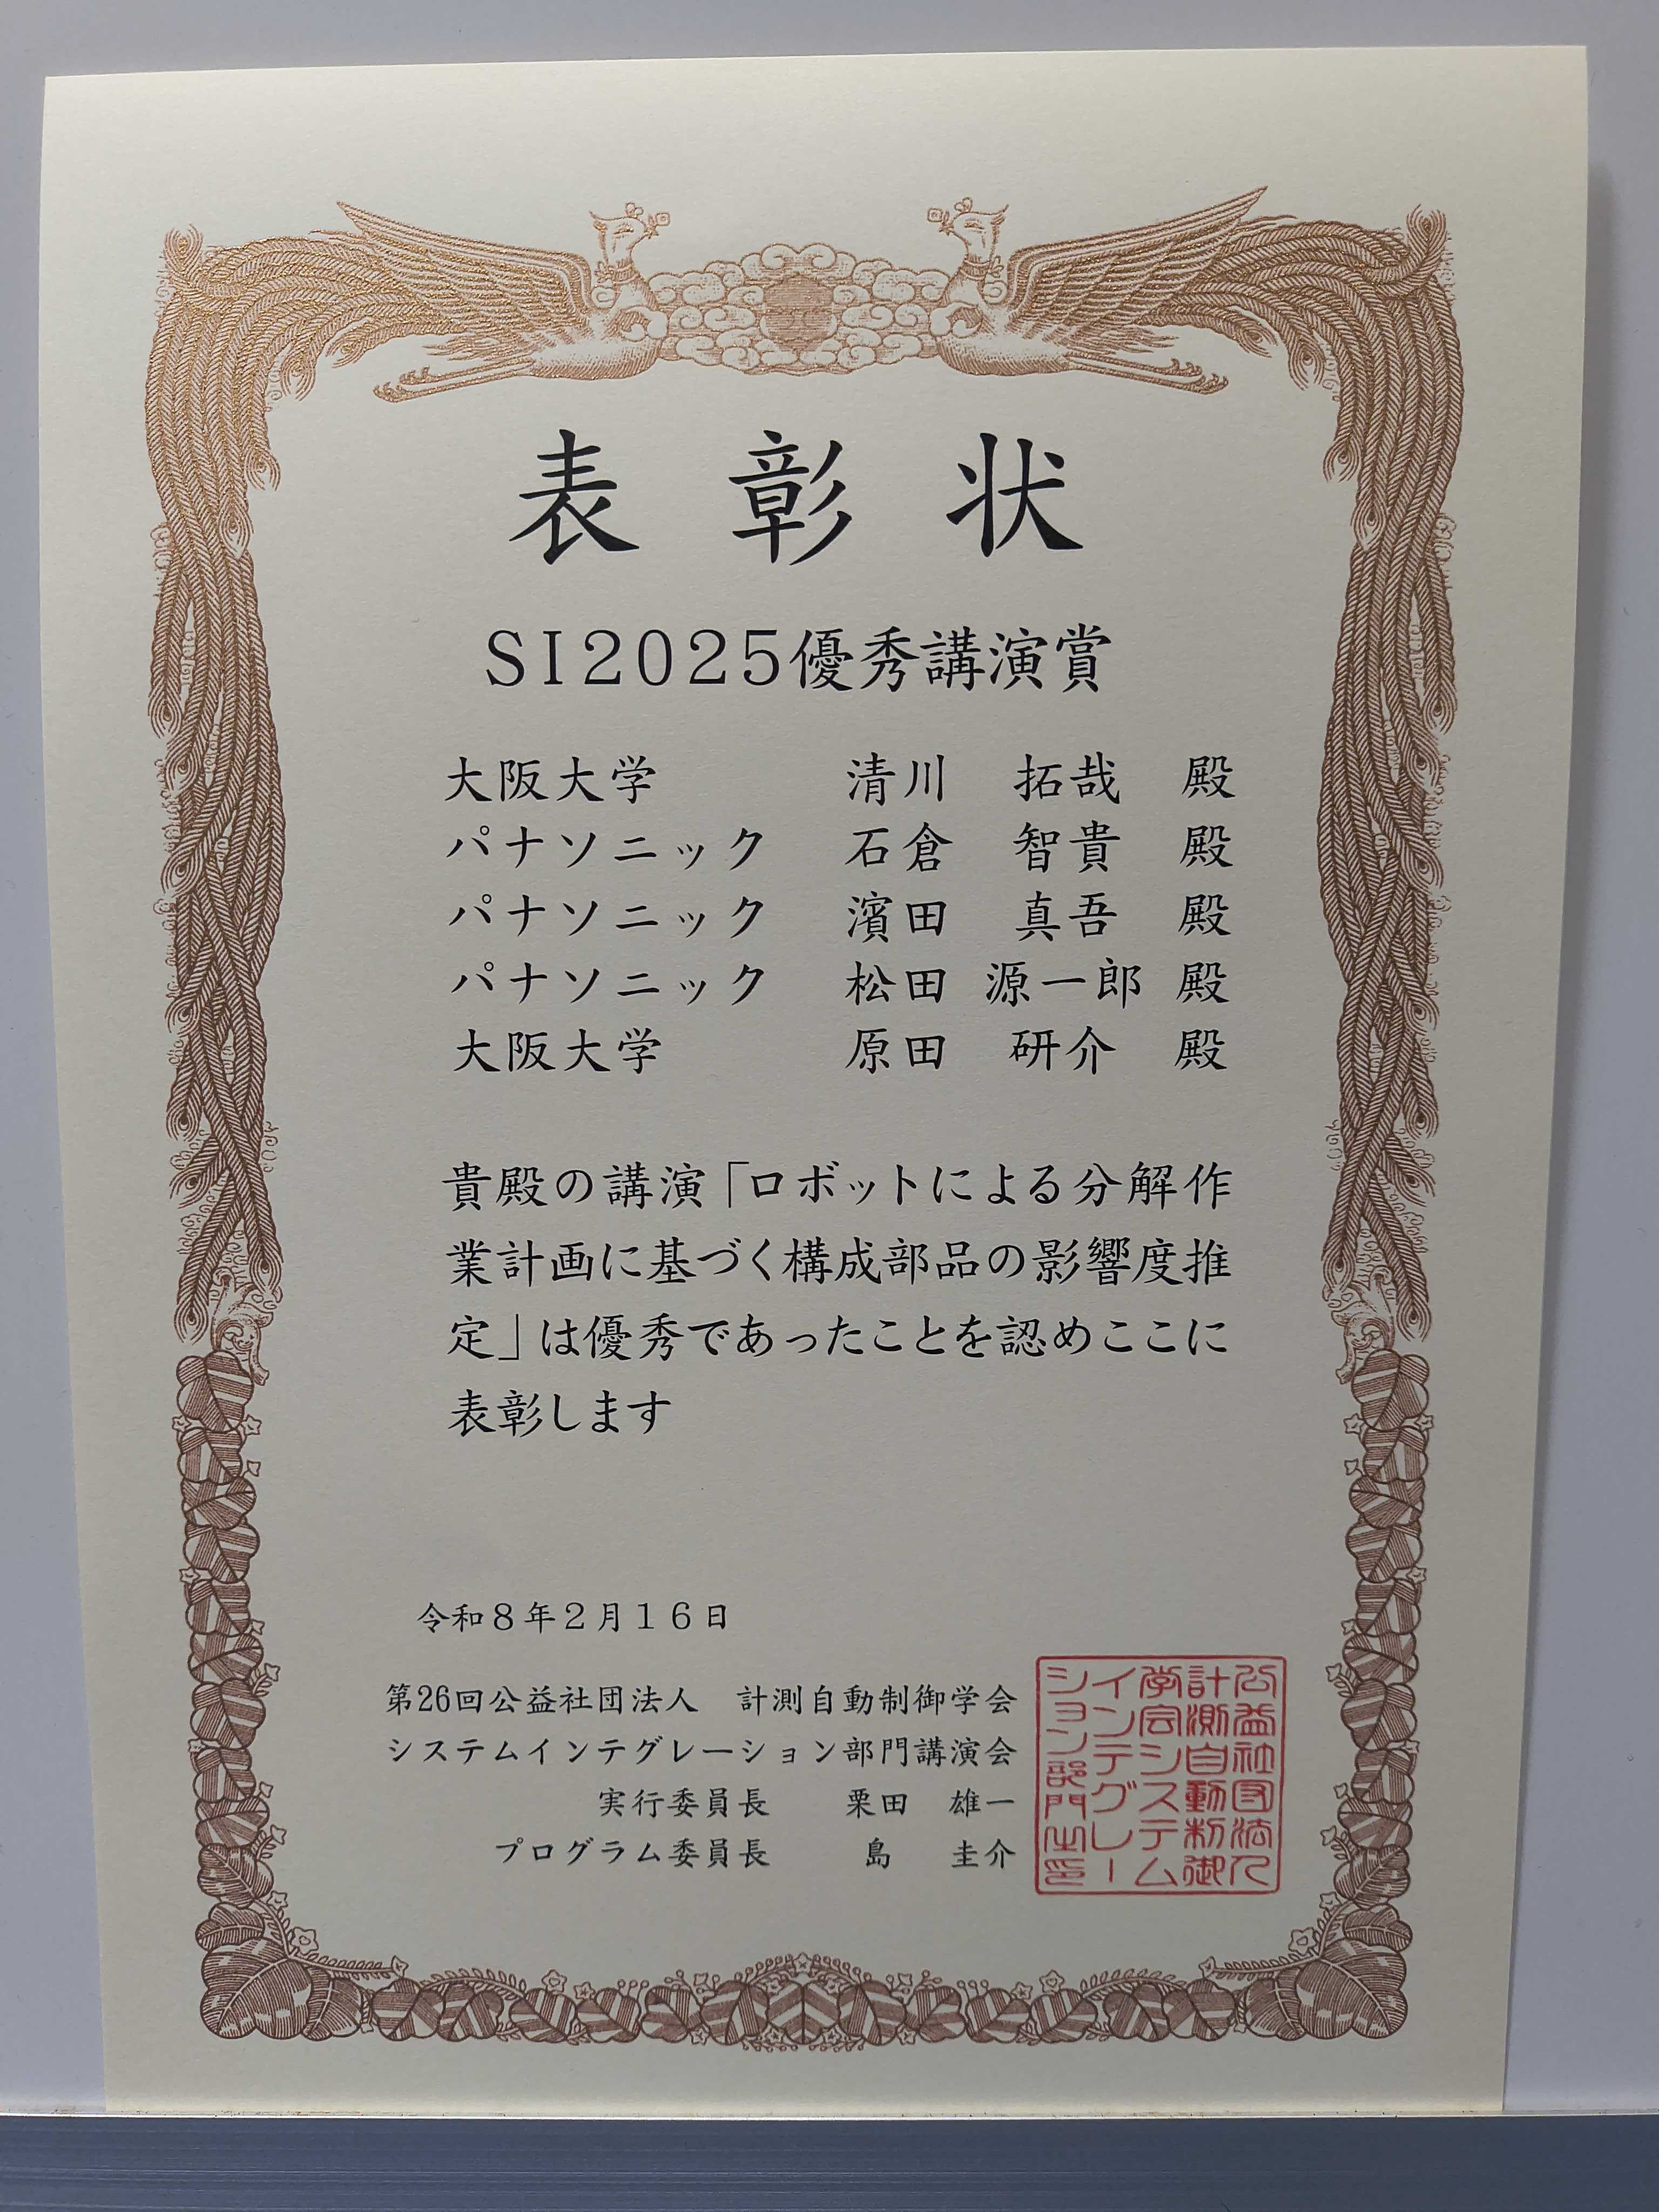 表彰状
SI2025優秀講演賞
大阪大学 清川 拓哉 殿
パナソニック 石倉 智貴 殿
パナソニック 濱田 真吾 殿
パナソニック 松田 源一郎 殿
大阪大学 原田 研介 殿
貴殿の講演「ロボットによる分解作
業計画に基づく構成部品の影響度推
定」は優秀であったことを認めここに
表彰します
令和8年2月16日
第26回公益社団法人 計測自動制御学会
システムインテグレーション部門講演会
実行委員長 栗田 雄一
プログラム委員長 島 圭介
公益社団法人
計測自動制御
学会システム
インテグレー
ション部門之印